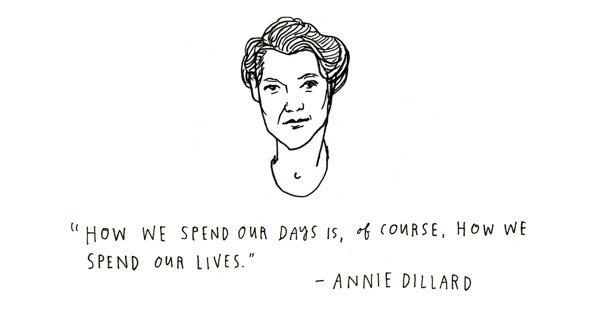 “HOW WE SPEND OUR DAYS IS, of COURSE, HOW WE
SPEND OUR LIVES.”
– ANNIE DILLARD